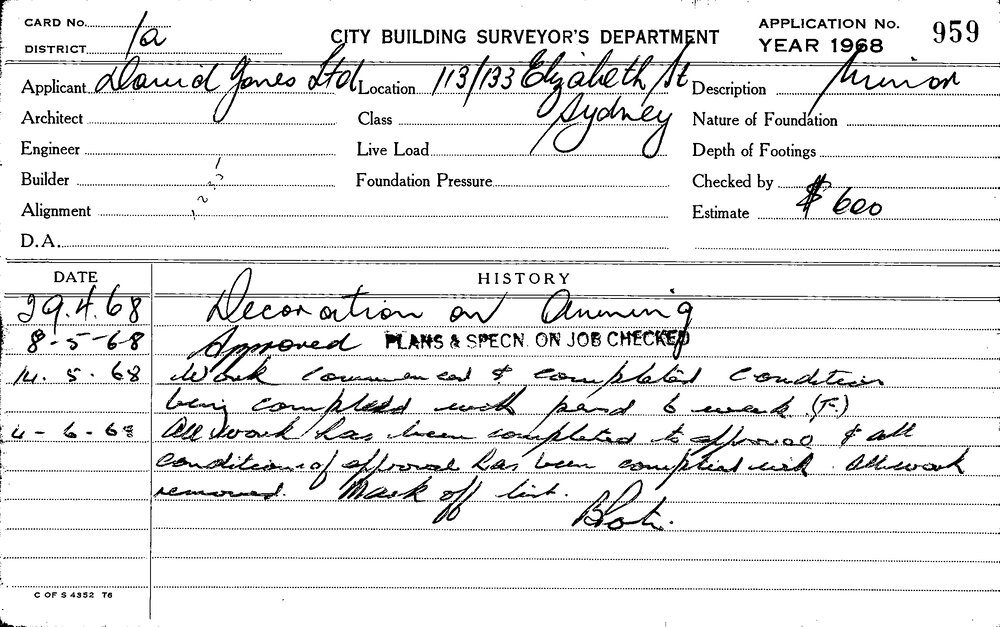 CARD No.
DISTRICT 1a
CITY BUILDING SURVEYOR'S DEPARTMENT
APPLICATION No. 959
YEAR 1968
Applicant David Jones Ltd Location 113/133 Elizabeth St Description Minor
Architect Class Sydney Nature of Foundation
Engineer Live Load Depth of Footings
Builder Foundation Pressure Checked by
Alignment Estimate $ 600
D.A.
DATE HISTORY
29.4.68 Decoration on Awning
8-5-68 Approved PLANS & SPECN. ON JOB CHECKED
14.5.68 Work commenced & completed condition
being complied with period 6 week
4-6-68 All work has been completed to approval & all
conditions of approval has been complied with. All work
removed. Mark off list.
C OF S 4352 T6